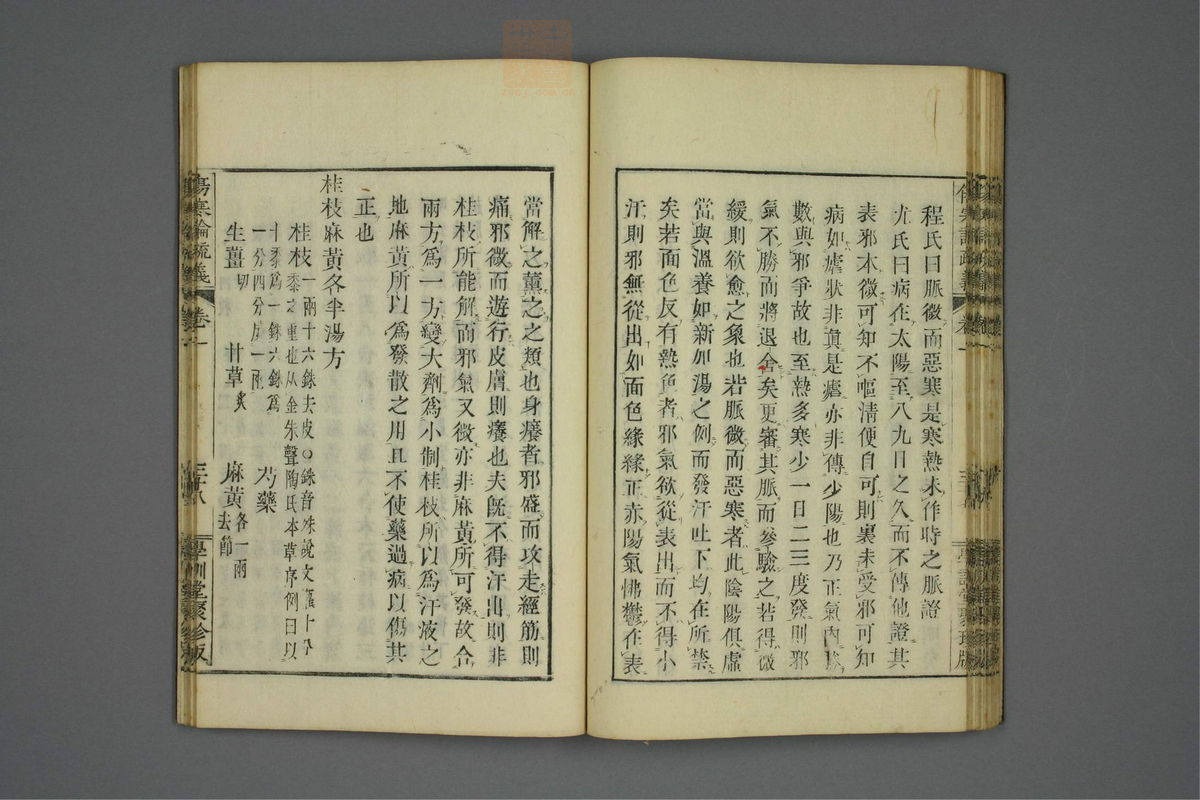 程氏曰脈微而惡寒是寒熱未作時之脈證
尤氏曰病在太陽至八九日之久而不傳他證其
表邪本微可知不嘔清便自可則裏未受邪可知
病如瘧狀非眞是瘧亦非傳少陽也乃正氣內勝
數與邪爭故也至熱多寒少一日二三度發則邪
氣不勝而將退舍矣更審其脈而參驗之若得微
緩則欲愈之象也若脈微而惡寒者此陰陽俱虛
當與溫養如新加湯之例而發汗吐下均在所禁
矣若面色反有熱色者邪氣欲從表出而不得小
汗則邪無從出如面色緣緣正赤陽氣怫鬱在表
當解之薰之之類也身癢者邪盛而攻走經筋則
痛邪微而遊行皮膚則癢也夫旣不得汗出則非
桂枝所能解而邪氣又微亦非麻黃所可發故合
兩方爲一方變大劑爲小制桂枝所以爲汗液之
地麻黃所以爲發散之用且不使藥過病以傷其
正也
桂枝麻黃各半湯方
桂枝一兩十六銖去皮○銖音殊說文權十分
黍之重也从金朱聲陶氏本草序例曰以
十黍爲一銖六銖爲
一分四分成一兩
芍藥
生薑切
甘草炙
麻黃各一兩去節
傷寒論疏義
卷一
三十八
學訓堂聚珍版